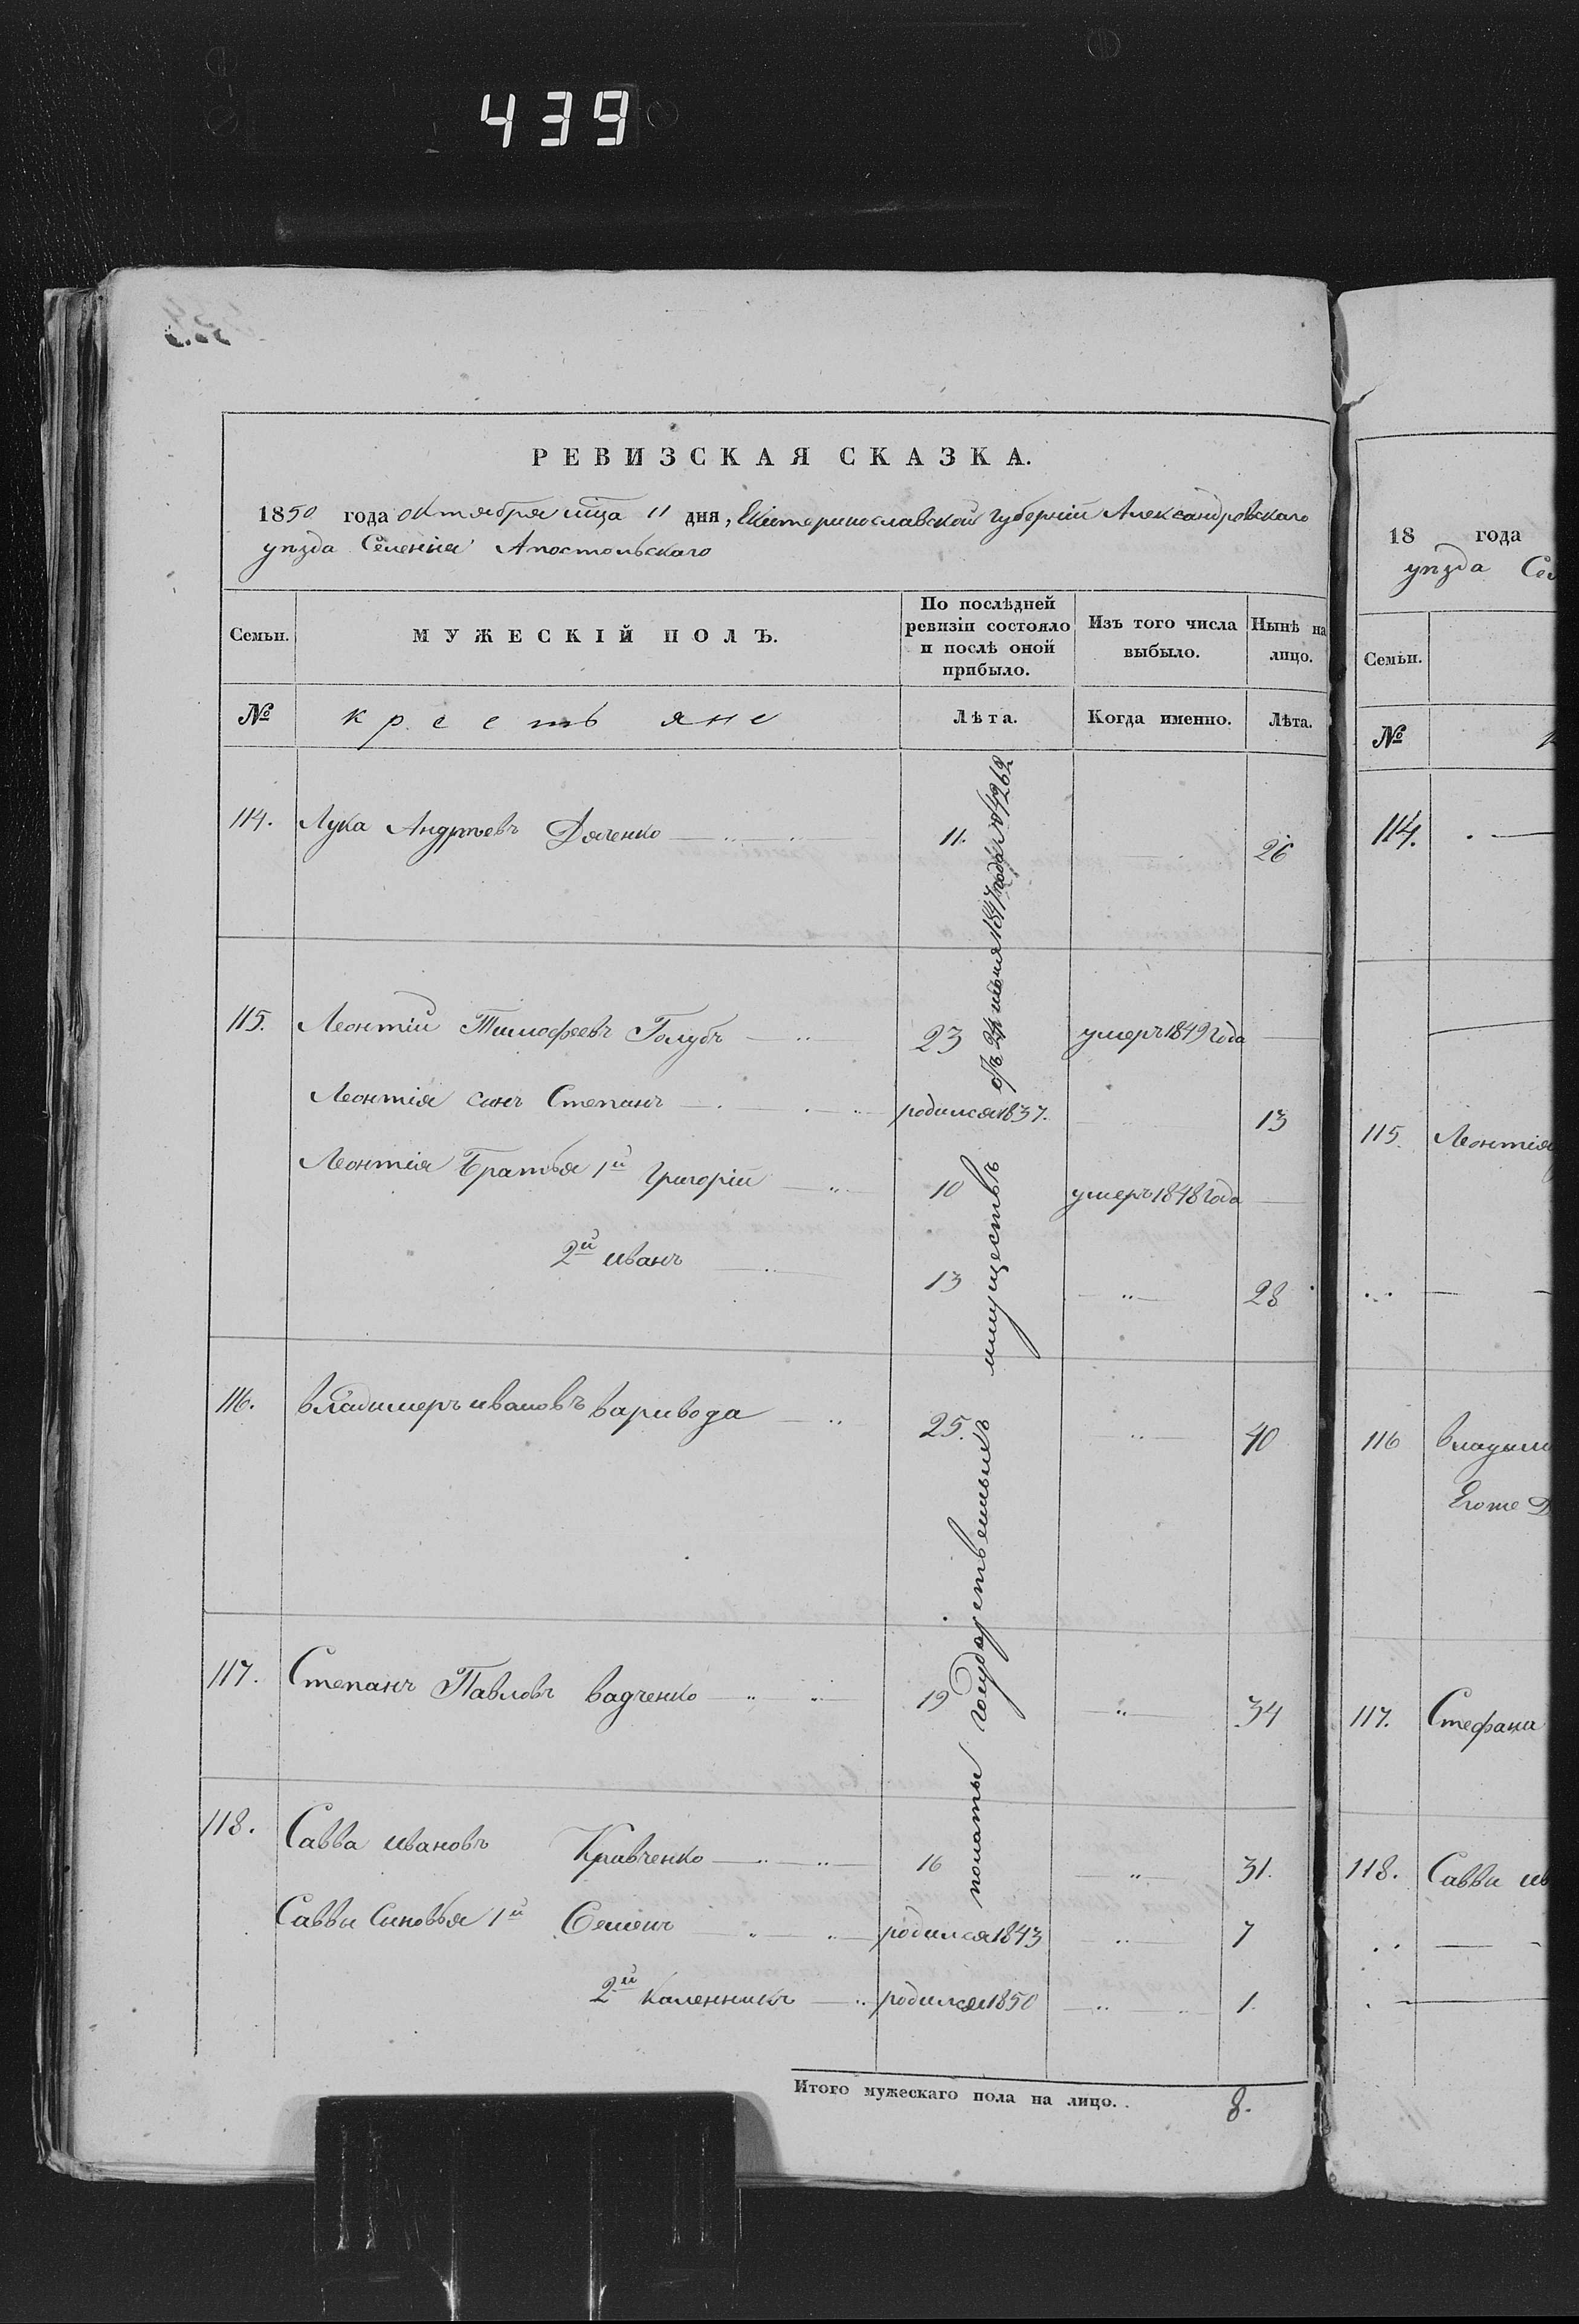 439
РЕВИЗСКАЯ СКАЗКА.
1850 года октября мца 11 дня, Екатеринославской Губерніи Александровскаго
уѣзда Селенія Апостольскаго
Семьи.
МУЖЕСКІЙ ПОЛЪ.
По послѣдней ревизіи состояло и послѣ оной прибыло.
Изъ того числа выбыло.
Нынѣ на лицо.
№ крестьяне Лѣта. Когда именно. Лѣта.
114. Лука Андреевъ Дяченко 11. 26
115. Леонтій Тимофеевъ Голубъ 23 умеръ 1849 года
Леонтія синъ Степанъ родился 1837. 13
Леонтія Братья 1й Григорій 10 умеръ 1848 года
2й иванъ 13 28
116. владимеръ ивановъ варивода 25. 40
117. Степанъ Павловъ вадченко 19 34
118. Савва ивановъ Кравченко 16 31.
Саввы Синовья 1й Семенъ родился 1843 7
2й каленникъ родился 1850 1.
полаты государственныхъ имуществъ
отъ 24 июня 1847 года
Итого мужескаго пола на лицо. 8.
18 года
уѣзда
Семьи.
№
114.
115. Леонтія
116
Егоже
117. Стефана
118. Саввы